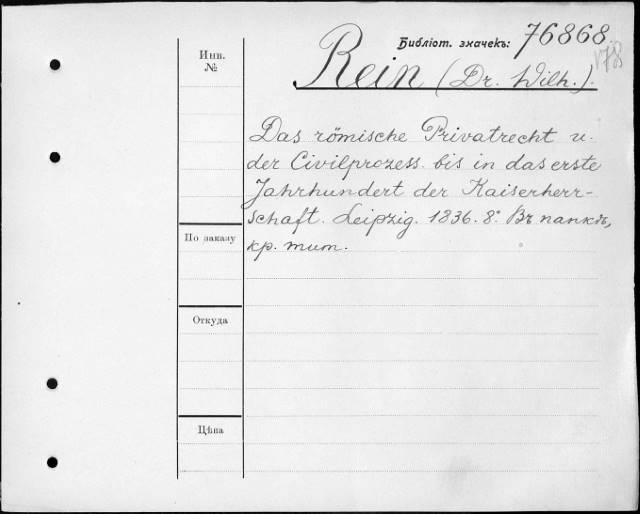 Библіот. значекъ: 76868.
178
Инв.
№
Rein (Dr. Wilh.).
Das römische Privatrecht u.
der Civilprozess bis in das erste
Jahrhundert der Kaiserherr-
schaft. Leipzig. 1836. 8°. Въ папкѣ,
кр. тит.
По заказу
Откуда
Цѣна